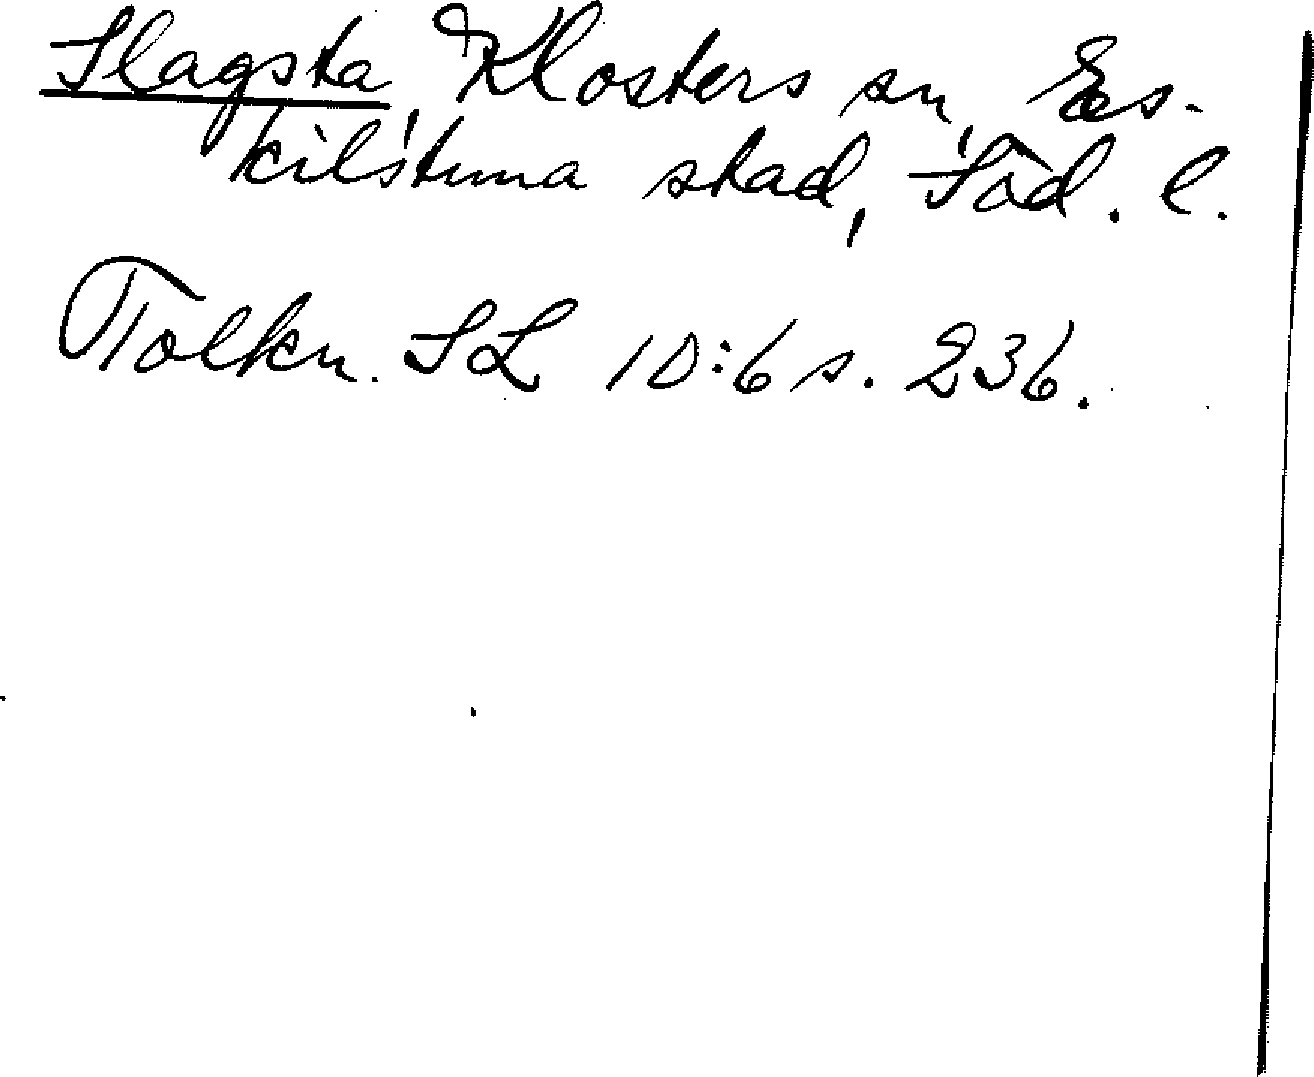 Slagsta, Klosters sn, Es-
kilstuna stad, Söd. l.
Tolkn. SL 10:6 s. 236.